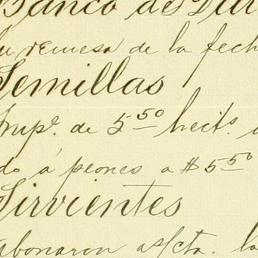 Banco de Dur
su remesa de la fech
Semillas
Imp.º de 5 50 hects.
do á peones a $5 50
Sirvientes
abonaron as/cta. la